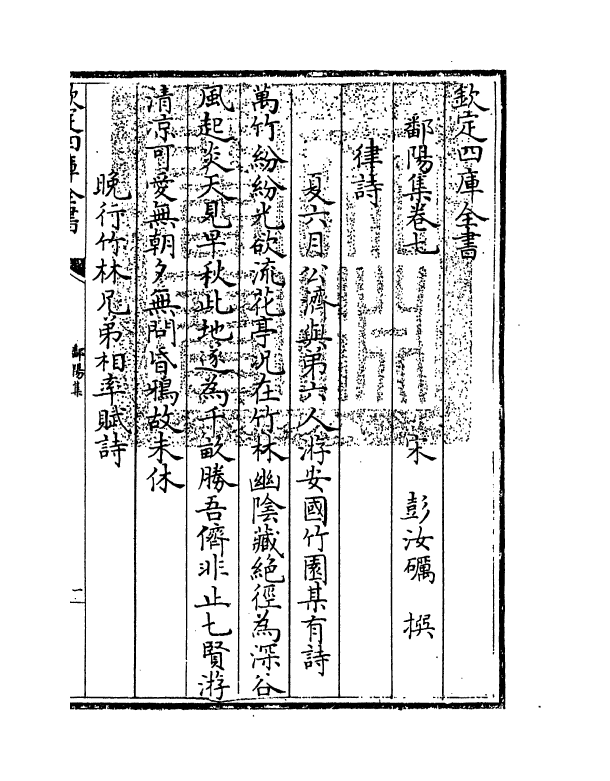 欽定四庫全書
鄱陽集卷七
宋 彭汝礪 撰
律詩
夏六月公濟與弟六人游安國竹園某有詩
萬竹紛紛光欲流花亭況在竹林幽陰藏絕徑為深谷
風起炎天見早秋此地遂為千畝勝吾儕非止七賢游
清涼可愛無朝夕無問昏鴉故未休
晚行竹林兄弟相率賦詩
欽定四庫全書
鄱陽集